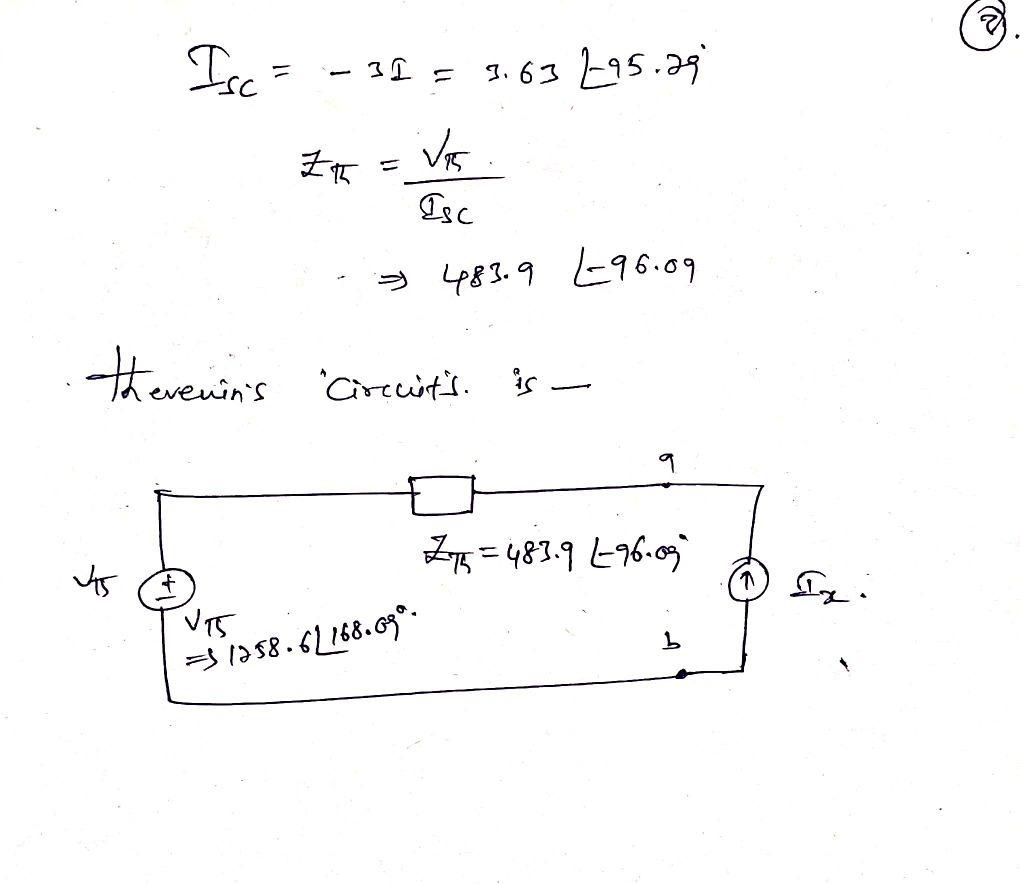 ②.
I_SC = - 3I = 3.63 ∠-95.29°
Z_Th = V_Th / I_SC
⇒ 483.9 ∠-96.09
thevenin's Circuit's. is —
a
Z_Th = 483.9 ∠-96.09°
V_Th
+
I_x.
V_Th
⇒ 1258.6 ∠168.09°.
b